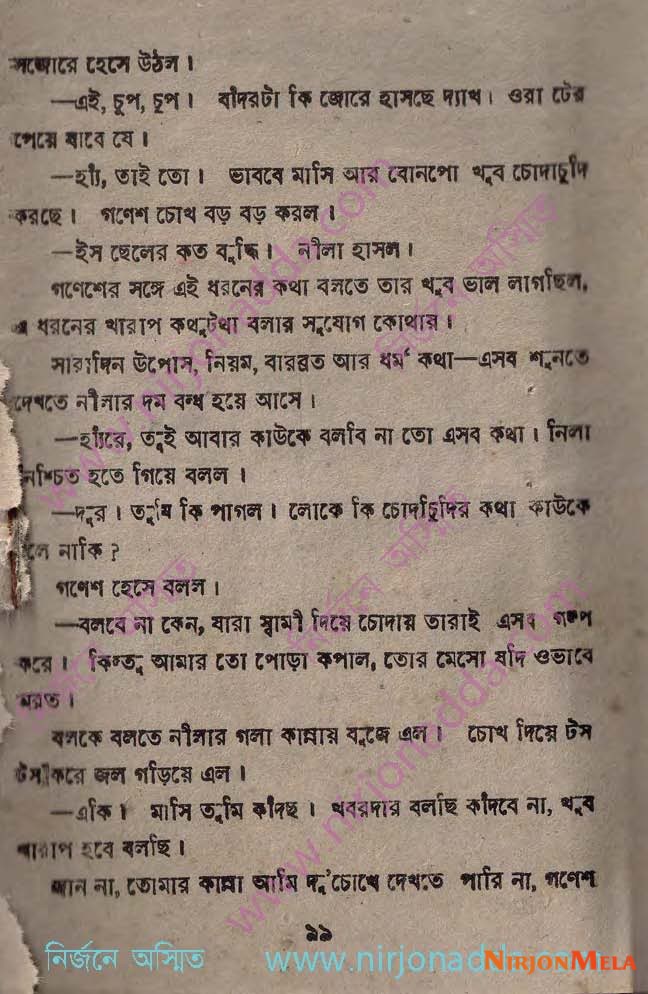 সজোরে হেসে উঠল।
—এই, চুপ, চুপ। বাঁদরটা কি জোরে হাসছে দ্যাখ। ওরা টের
পেয়ে যাবে যে।
—হ্যাঁ, তাই তো। ভাববে মাসি আর বোনপো খুব চোদাচুদি
করছে। গণেশ চোখ বড় বড় করল।
—ইস ছেলের কত বুদ্ধি। নীলা হাসল।
গণেশের সঙ্গে এই ধরনের কথা বলতে তার খুব ভাল লাগছিল,
এ ধরনের খারাপ কথাটথা বলার সুযোগ কোথায়।
সারাদিন উপোস, নিয়ম, বারব্রত আর ধর্ম কথা—এসব শুনতে
দেখতে নীলার দম বন্ধ হয়ে আসে।
—হ্যাঁরে, তুই আবার কাউকে বলবি না তো এসব কথা। নিলা
নিশ্চিত হতে গিয়ে বলল।
—দুর। তুমি কি পাগল। লোকে কি চোদাচুদির কথা কাউকে
লে নাকি?
গণেশ হেসে বলল।
—বলবে না কেন, যারা স্বামী দিয়ে চোদায় তারাই এসব গল্প
করে। কিন্তু আমার তো পোড়া কপাল, তোর মেসো যদি ওভাবে
মরত।
বলকে বলতে নীলার গলা কান্নায় বুজে এল। চোখ দিয়ে টস
টস করে জল গড়িয়ে এল।
—একি। মাসি তুমি কাঁদছ। খবরদার বলছি কাঁদবে না, খুব
খারাপ হবে বলছি।
জান না, তোমার কান্না আমি দু'চোখে দেখতে পারি না, গণেশ
১১
নির্জনে অস্মিত www.nirjonad NIRJONMELA
www.nirjonadda.com নির্জনে অস্মিত
www.nirjonadda.com নির্জনে অস্মিত